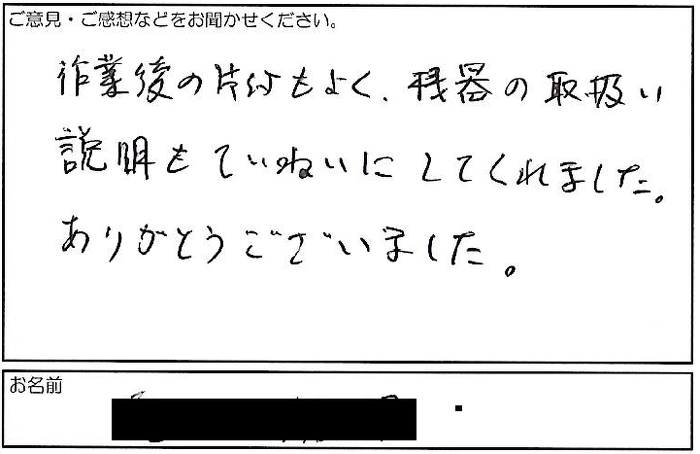 ご意見・ご感想などをお聞かせください。
作業後の片付もよく、機器の取扱い
説明もていねいにしてくれました。
ありがとうございました。
お名前